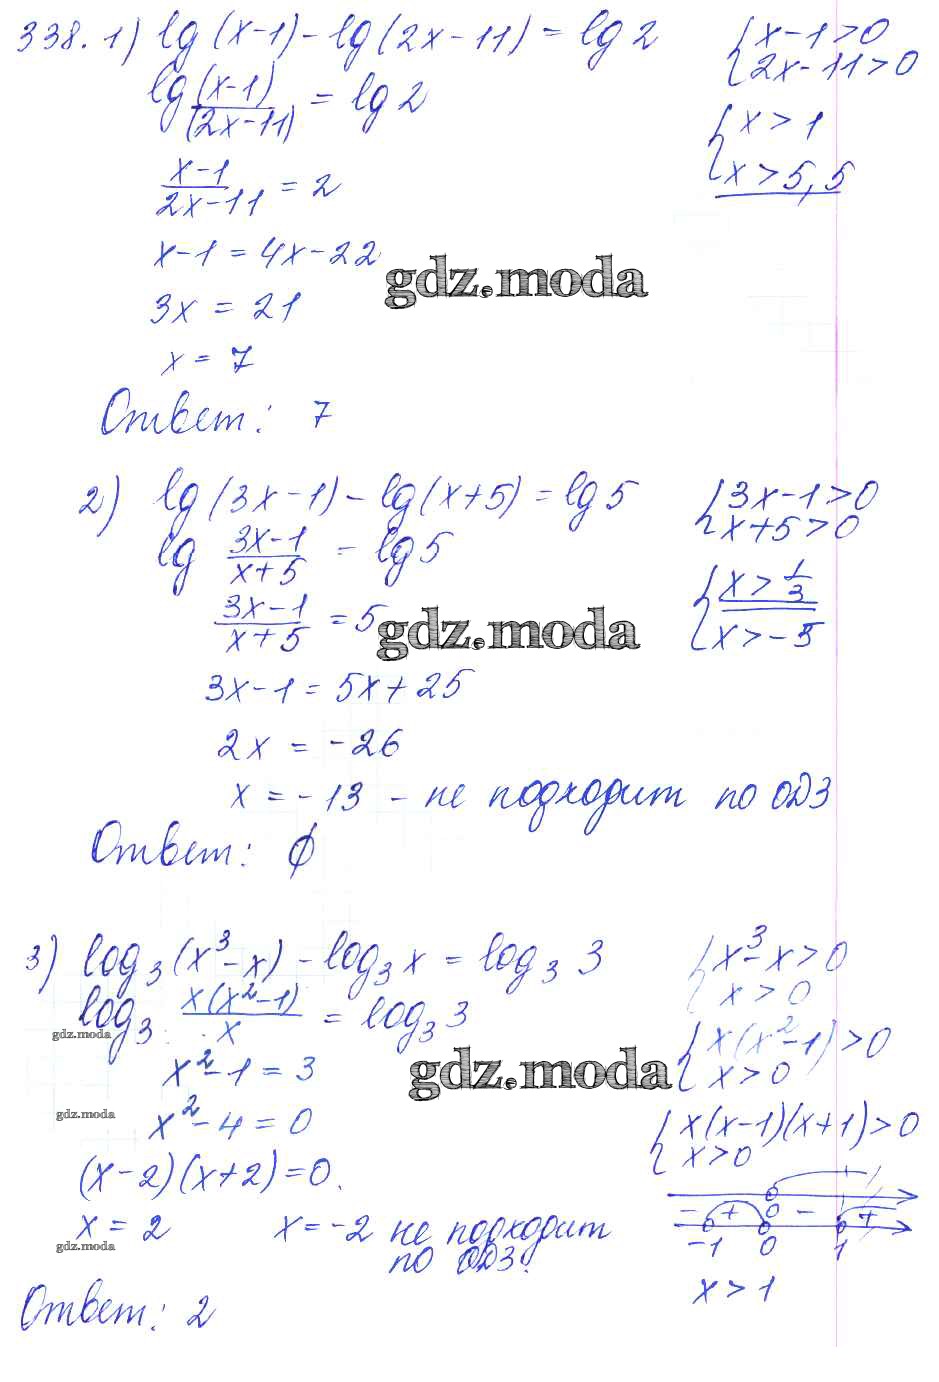 338. 1) lg(x-1) - lg(2x-11) = lg 2
{ x-1>0
2x-11>0
lg (x-1)/(2x-11) = lg 2
{ x > 1
x > 5,5
(x-1)/(2x-11) = 2
x-1 = 4x-22
gdz.moda
3x = 21
x = 7
Ответ: 7
2) lg(3x-1) - lg(x+5) = lg 5
{ 3x-1>0
x+5>0
lg (3x-1)/(x+5) = lg 5
{ x > 1/3
x > -5
(3x-1)/(x+5) = 5
gdz.moda
3x-1 = 5x+25
2x = -26
x = -13 - не подходит по ОДЗ
Ответ: ∅
3) log₃(x³-x) - log₃x = log₃ 3
{ x³-x>0
x>0
log₃ x(x²-1)/x = log₃3
gdz.moda
{ x(x²-1)>0
x>0
x²-1 = 3
gdz.moda
x²-4 = 0
gdz.moda
{ x(x-1)(x+1)>0
x>0
(x-2)(x+2)=0.
x = 2 x = -2 не подходит
по ОДЗ.
gdz.moda
+
0
- + - +
-1 0 1
x > 1
Ответ: 2